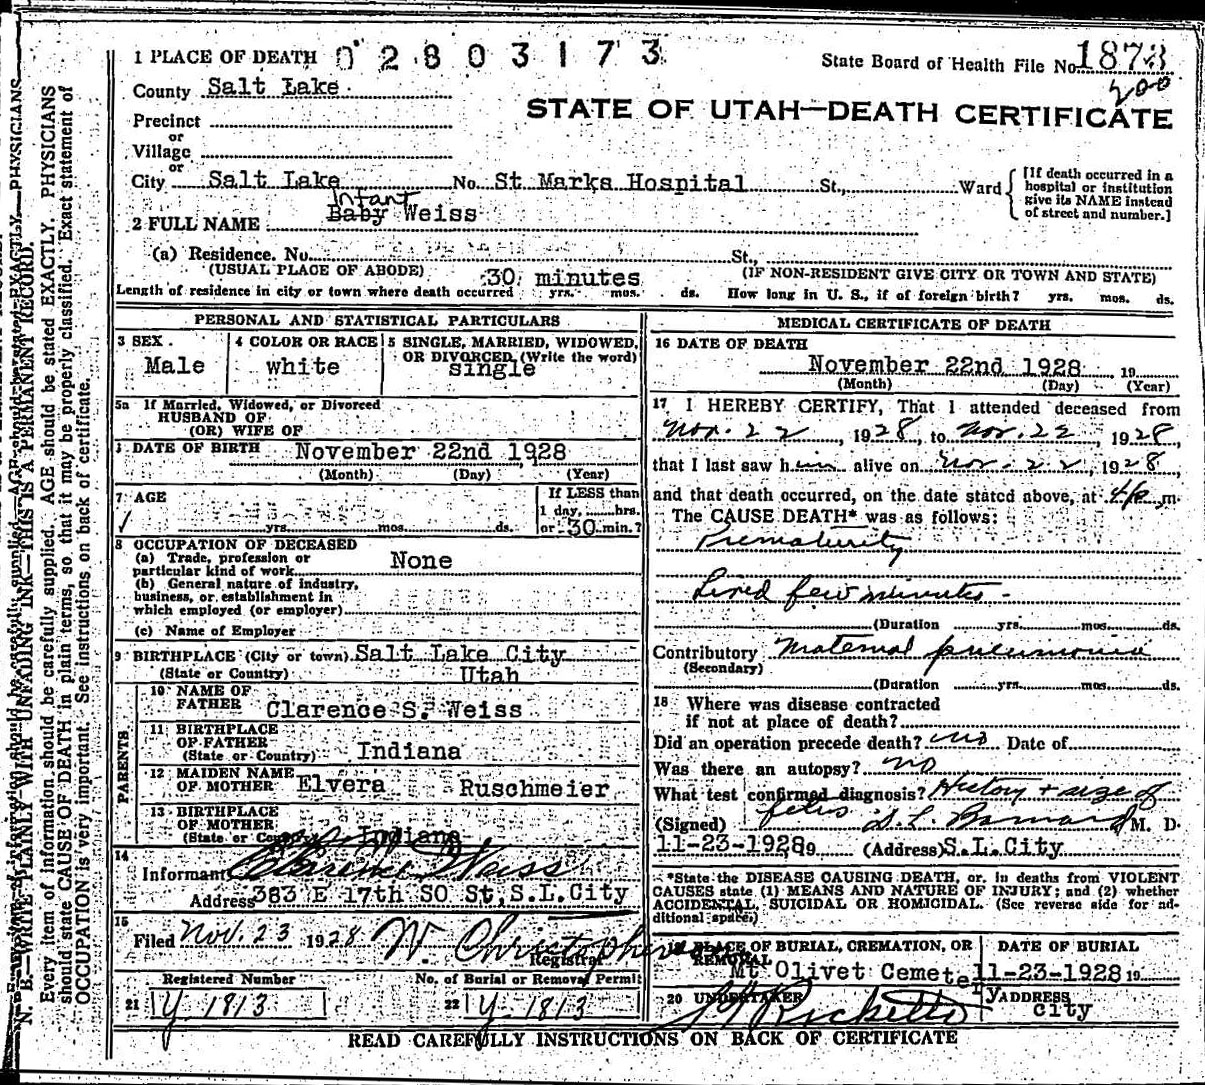 1 PLACE OF DEATH 02803173
State Board of Health File No. 1873
200
County Salt Lake
STATE OF UTAH—DEATH CERTIFICATE
Precinct
or
Village
or
City Salt Lake No. St Marks Hospital St., Ward [If death occurred in a hospital or institution give its NAME instead of street and number.]
Infant
2 FULL NAME Baby Weiss
(a) Residence. No. St.,
(USUAL PLACE OF ABODE) 30 minutes (IF NON-RESIDENT GIVE CITY OR TOWN AND STATE)
Length of residence in city or town where death occurred yrs. mos. ds. How long in U. S., if of foreign birth? yrs. mos. ds.
PERSONAL AND STATISTICAL PARTICULARS
3 SEX
Male
4 COLOR OR RACE
white
5 SINGLE, MARRIED, WIDOWED, OR DIVORCED (Write the word)
single
5a If Married, Widowed, or Divorced
HUSBAND OF
(OR) WIFE OF
DATE OF BIRTH November 22nd 1928
(Month) (Day) (Year)
7 AGE
yrs. mos. ds.
If LESS than
1 day, hrs.
or 30 min.?
8 OCCUPATION OF DECEASED
(a) Trade, profession or
particular kind of work None
(b) General nature of industry,
business, or establishment in
which employed (or employer)
(c) Name of Employer
9 BIRTHPLACE (City or town) Salt Lake City
(State or Country) Utah
PARENTS
10 NAME OF
FATHER Clarence S. Weiss
11 BIRTHPLACE
OF FATHER
(State or Country) Indiana
12 MAIDEN NAME
OF MOTHER Elvera Ruschmeier
13 BIRTHPLACE
OF MOTHER
(State or Country) Indiana
14
Informant Clarence Weiss
Address 383 E 17th SO St, S.L.City
15
Filed Nov. 23 1928 W. Christopherson
Registrar
Registered Number No. of Burial or Removal Permit
21 Y-1813 22 Y-1813
MEDICAL CERTIFICATE OF DEATH
16 DATE OF DEATH
November 22nd 1928 19
(Month) (Day) (Year)
17 I HEREBY CERTIFY, That I attended deceased from
Nov. 22, 1928, to Nov. 22, 1928,
that I last saw him alive on Nov. 22, 1928,
and that death occurred, on the date stated above, at m.
The CAUSE DEATH* was as follows:
Prematurity
Lived few minutes -
(Duration yrs. mos. ds.
Contributory Maternal pneumonia
(Secondary)
(Duration yrs. mos. ds.
18 Where was disease contracted
if not at place of death?
Did an operation precede death? no Date of
Was there an autopsy? no
What test confirmed diagnosis? History + size of
fetus
(Signed) S. L. Barnard M. D.
11-23-1928 19 (Address) S.L.City
*State the DISEASE CAUSING DEATH, or, in deaths from VIOLENT
CAUSES state (1) MEANS AND NATURE OF INJURY; and (2) whether
ACCIDENTAL, SUICIDAL OR HOMICIDAL. (See reverse side for ad-
ditional space.)
19 PLACE OF BURIAL, CREMATION, OR
REMOVAL
Mt Olivet Cemetery
DATE OF BURIAL
11-23-1928 19
20 UNDERTAKER
Ricketts
ADDRESS
city
READ CAREFULLY INSTRUCTIONS ON BACK OF CERTIFICATE
N. B.—WRITE PLAINLY WITH UNFADING INK—THIS IS A PERMANENT RECORD.
Every item of information should be carefully supplied. AGE should be stated EXACTLY. PHYSICIANS
should state CAUSE OF DEATH in plain terms, so that it may be properly classified. Exact statement of
OCCUPATION is very important. See instructions on back of certificate.